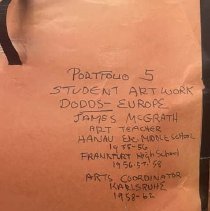 PORTFOLIO 5
STUDENT ART WORK
DODDS- EUROPE
JAMES McGRATH
ART TEACHER
HANAU MIDDLE SCHOOL
1955-56
FRANKFURT HIGH SCHOOL
1956-57-58
ARTS COORDINATOR
KARLSRUHE
1958-62